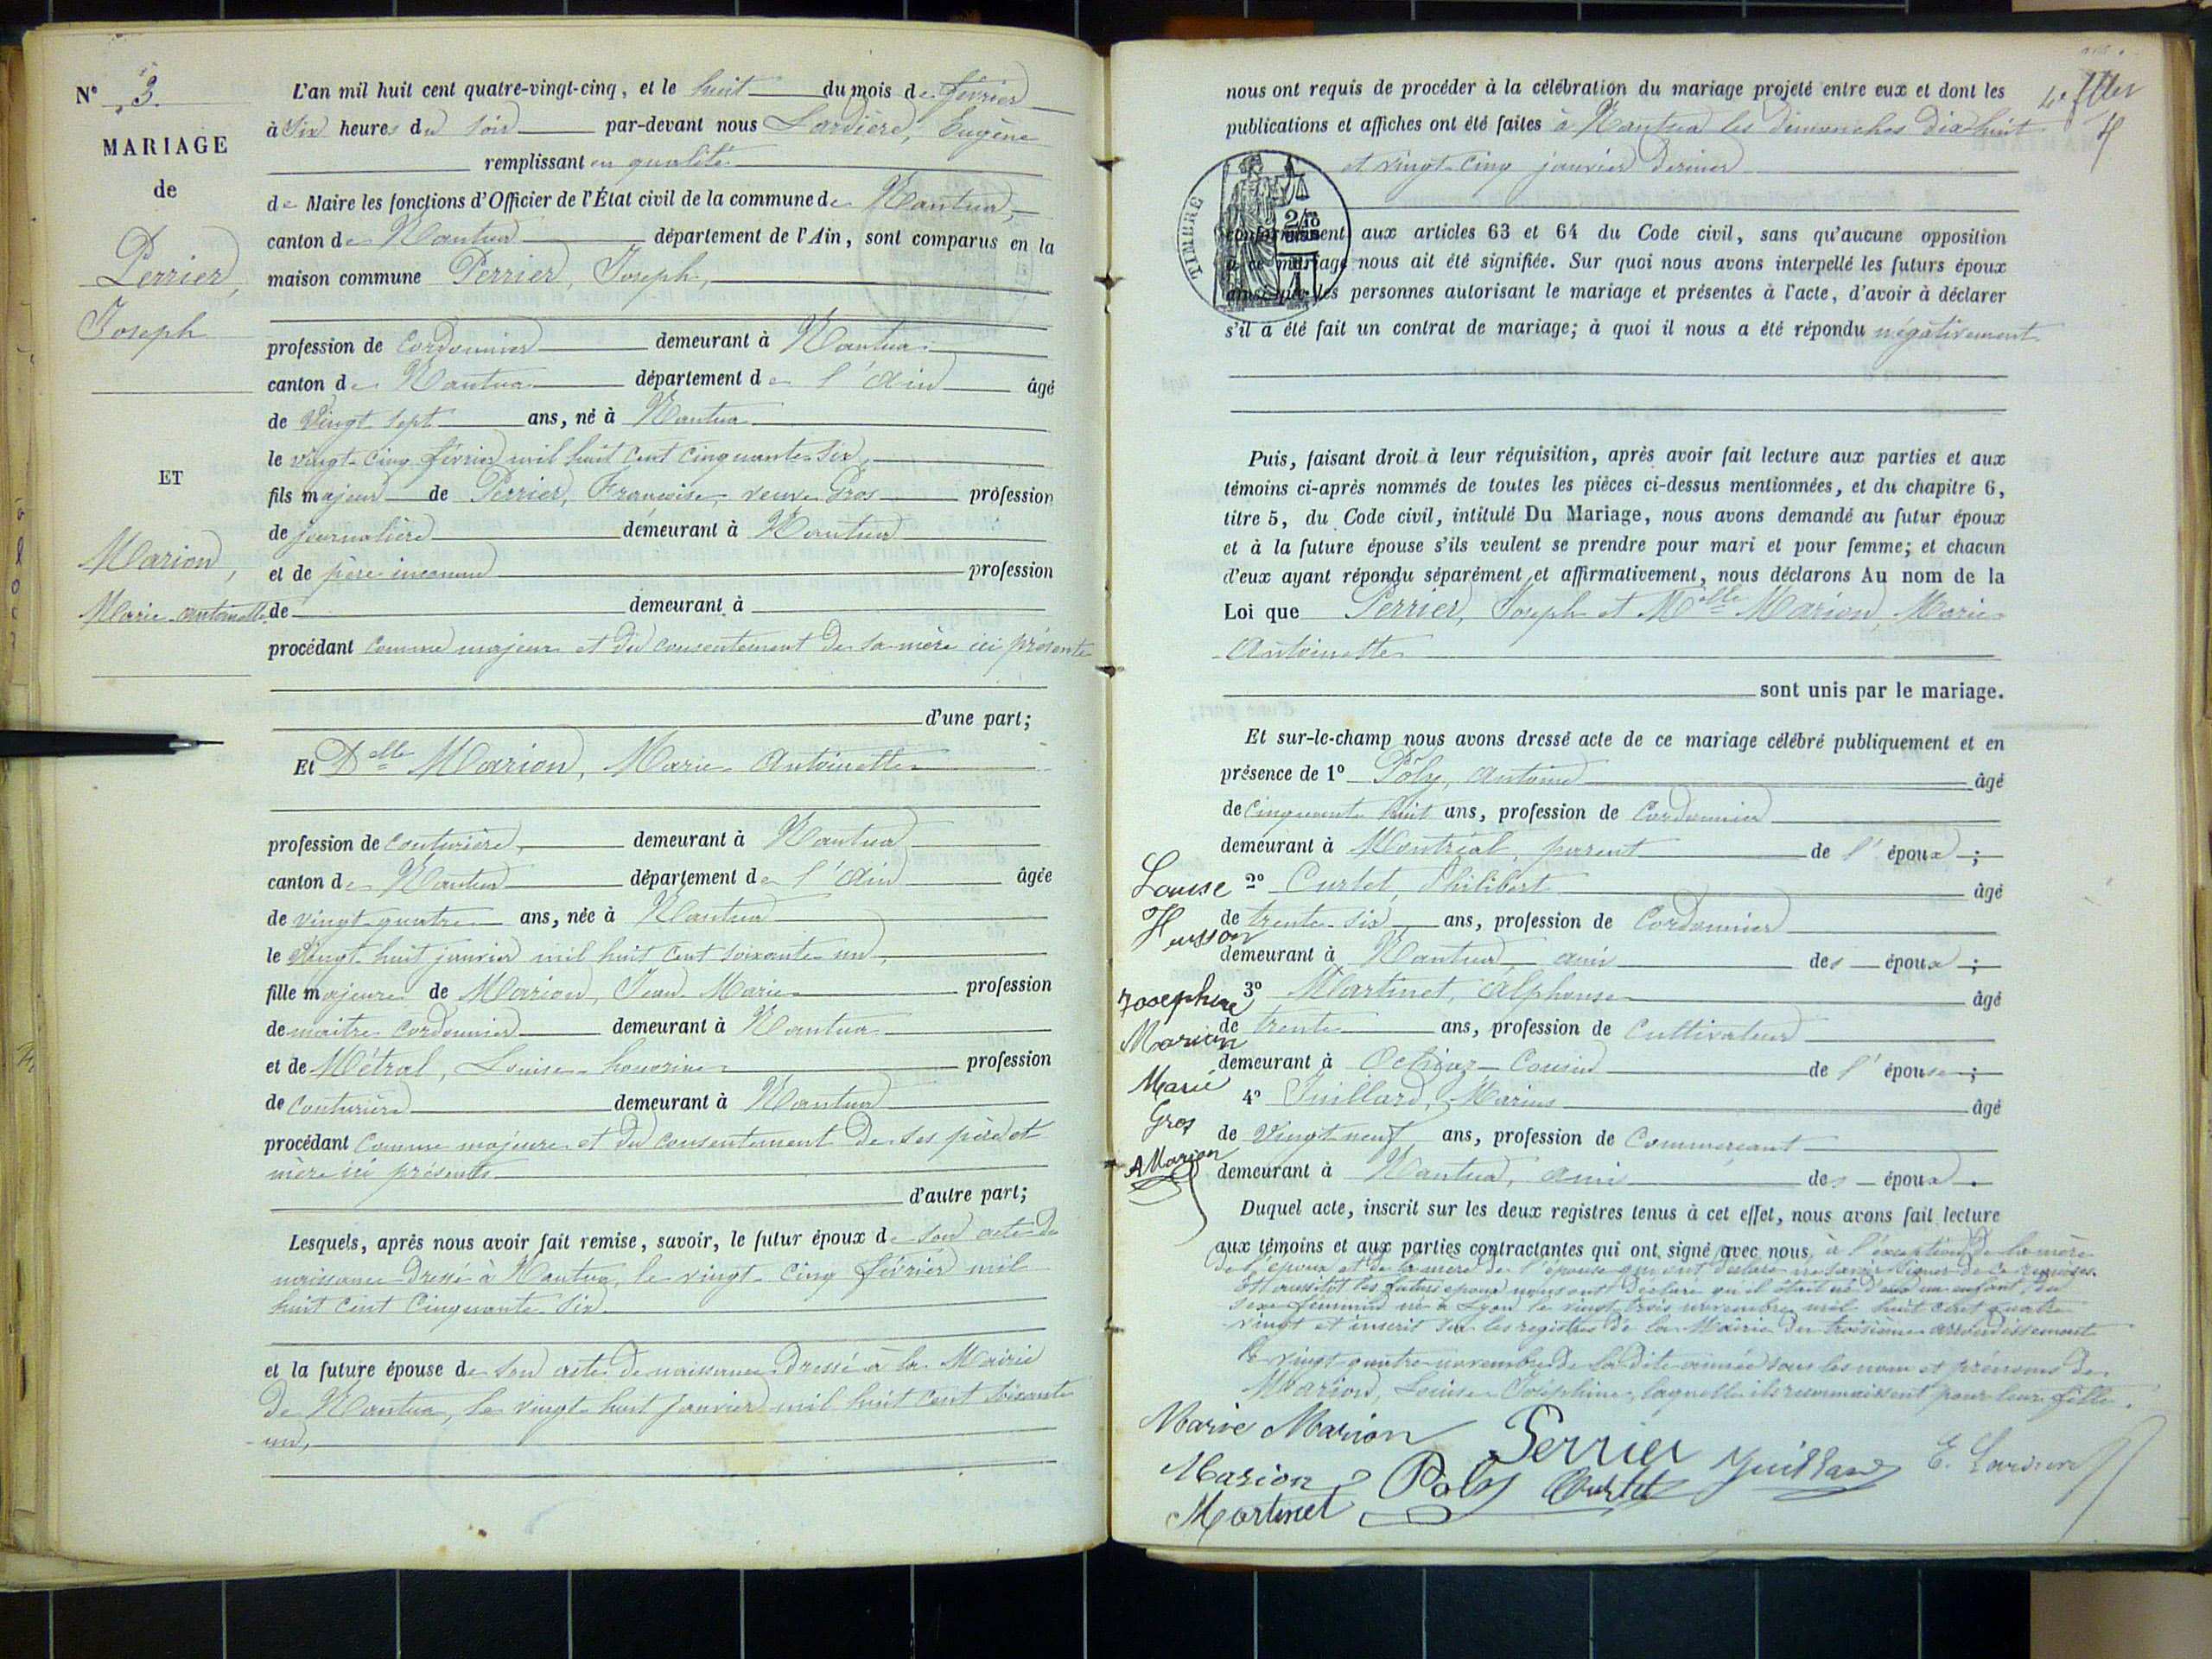 N° 3.
MARIAGE
de
Perrier,
Joseph
ET
Marion,
Marie Antoinette
L'an mil huit cent quatre-vingt-cinq, et le huit du mois de février
à six heures du soir par-devant nous Lardière, Eugène
remplissant en qualité
de Maire les fonctions d'Officier de l'État civil de la commune de Nantua,
canton de Nantua département de l'Ain, sont comparus en la
maison commune Perrier, Joseph,
profession de Cordonnier demeurant à Nantua
canton de Nantua département de l'Ain âgé
de Vingt sept ans, né à Nantua
le vingt-cinq février mil huit cent cinquante-six,
fils majeur de Perrier, Françoise, veuve Gros profession
de journalière demeurant à Nantua
et de père inconnu profession
de demeurant à
procédant comme majeur et du consentement de sa mère ici présente
d'une part;
Et Delle Marion, Marie Antoinette
profession de couturière, demeurant à Nantua
canton de Nantua département de l'Ain âgée
de vingt-quatre ans, née à Nantua
le Vingt-huit janvier mil huit cent soixante-un,
fille majeure de Marion, Jean Marie profession
de maître cordonnier demeurant à Nantua
et de Métral, Louise honorine profession
de couturière demeurant à Nantua
procédant comme majeure et du consentement de ses père et
mère ici présents
d'autre part;
Lesquels, après nous avoir fait remise, savoir, le futur époux de son acte de
naissance dressé à Nantua, le vingt-cinq février mil
huit cent cinquante-six
et la future épouse de son acte de naissance dressé à la Mairie
de Nantua, le vingt-huit janvier mil huit cent soixante
un,
nous ont requis de procéder à la célébration du mariage projeté entre eux et dont les
publications et affiches ont été faites à Nantua les dimanches dix-huit
et vingt-cinq janvier dernier
TIMBRE
conformément aux articles 63 et 64 du Code civil, sans qu'aucune opposition
à ce mariage nous ait été signifiée. Sur quoi nous avons interpellé les futurs époux
ainsi que les personnes autorisant le mariage et présentes à l'acte, d'avoir à déclarer
s'il a été fait un contrat de mariage; à quoi il nous a été répondu négativement
Puis, faisant droit à leur réquisition, après avoir fait lecture aux parties et aux
témoins ci-après nommés de toutes les pièces ci-dessus mentionnées, et du chapitre 6,
titre 5, du Code civil, intitulé Du Mariage, nous avons demandé au futur époux
et à la future épouse s'ils veulent se prendre pour mari et pour femme; et chacun
d'eux ayant répondu séparément et affirmativement, nous déclarons Au nom de la
Loi que Perrier, Joseph et Melle Marion Marie
Antoinette
sont unis par le mariage.
Et sur-le-champ nous avons dressé acte de ce mariage célébré publiquement et en
présence de 1° Poly, Antoine âgé
de cinquante huit ans, profession de Cordonnier
demeurant à Montréal, parent de l'époux ;
2° Curtet, Philibert âgé
de trente-six ans, profession de Cordonnier
demeurant à Nantua, ami des époux ;
3° Martinet, Alphonse âgé
de trente ans, profession de Cultivateur
demeurant à Ochiaz Cousin de l'épouse ;
4° Juillard, Marius âgé
de Vingt neuf ans, profession de Commerçant
demeurant à Nantua, ami des époux .
Louise
Husson
Josephine
Marion
Marie
Gros
A Marion
Duquel acte, inscrit sur les deux registres tenus à cet effet, nous avons fait lecture
aux témoins et aux parties contractantes qui ont signé avec nous, à l'exception de la mère
de l'époux et de la mère de l'épouse qui ont déclaré ne savoir signer de ce requises.
Et aussitôt les futurs époux nous ont déclaré qu'il était né d'eux un enfant, du
sexe féminin né à Lyon le vingt trois novembre mil huit cent quatre
vingt et inscrit sur les registres de la Mairie du troisième arrondissement
le vingt-quatre novembre de la dite année sous les nom et prénoms de
Marion, Louise Joséphine, laquelle ils reconnaissent pour leur fille.
Marie Marion Perrier Juillard E. Lardière
Marion Poly Curtet
Martinet